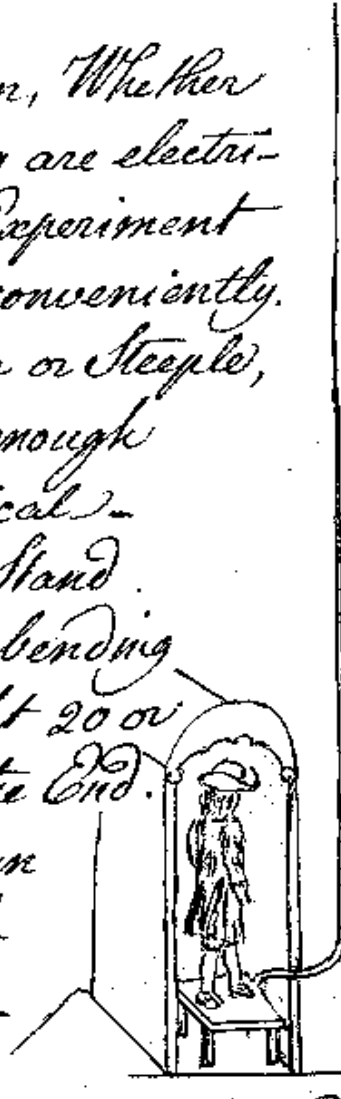 n, Whether
are electri-
Experiment
conveniently.
or Steeple,
enough
ical-
Stand
bending
20 or
End.